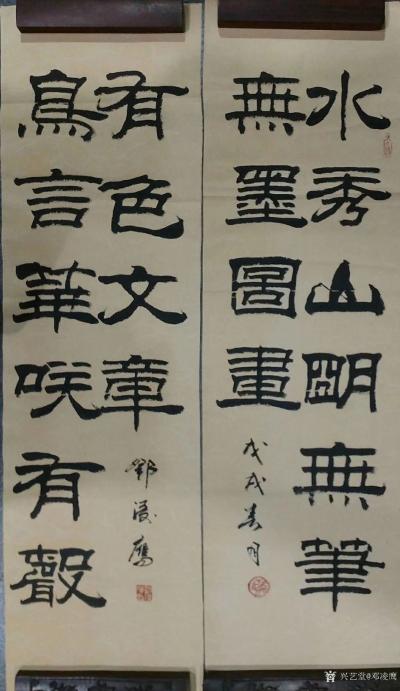 水秀山明無筆
無墨圖畫
戊戌春月
鳥言華咲有聲
有色文章
鄧凌鷹
兴艺堂@邓凌鹰